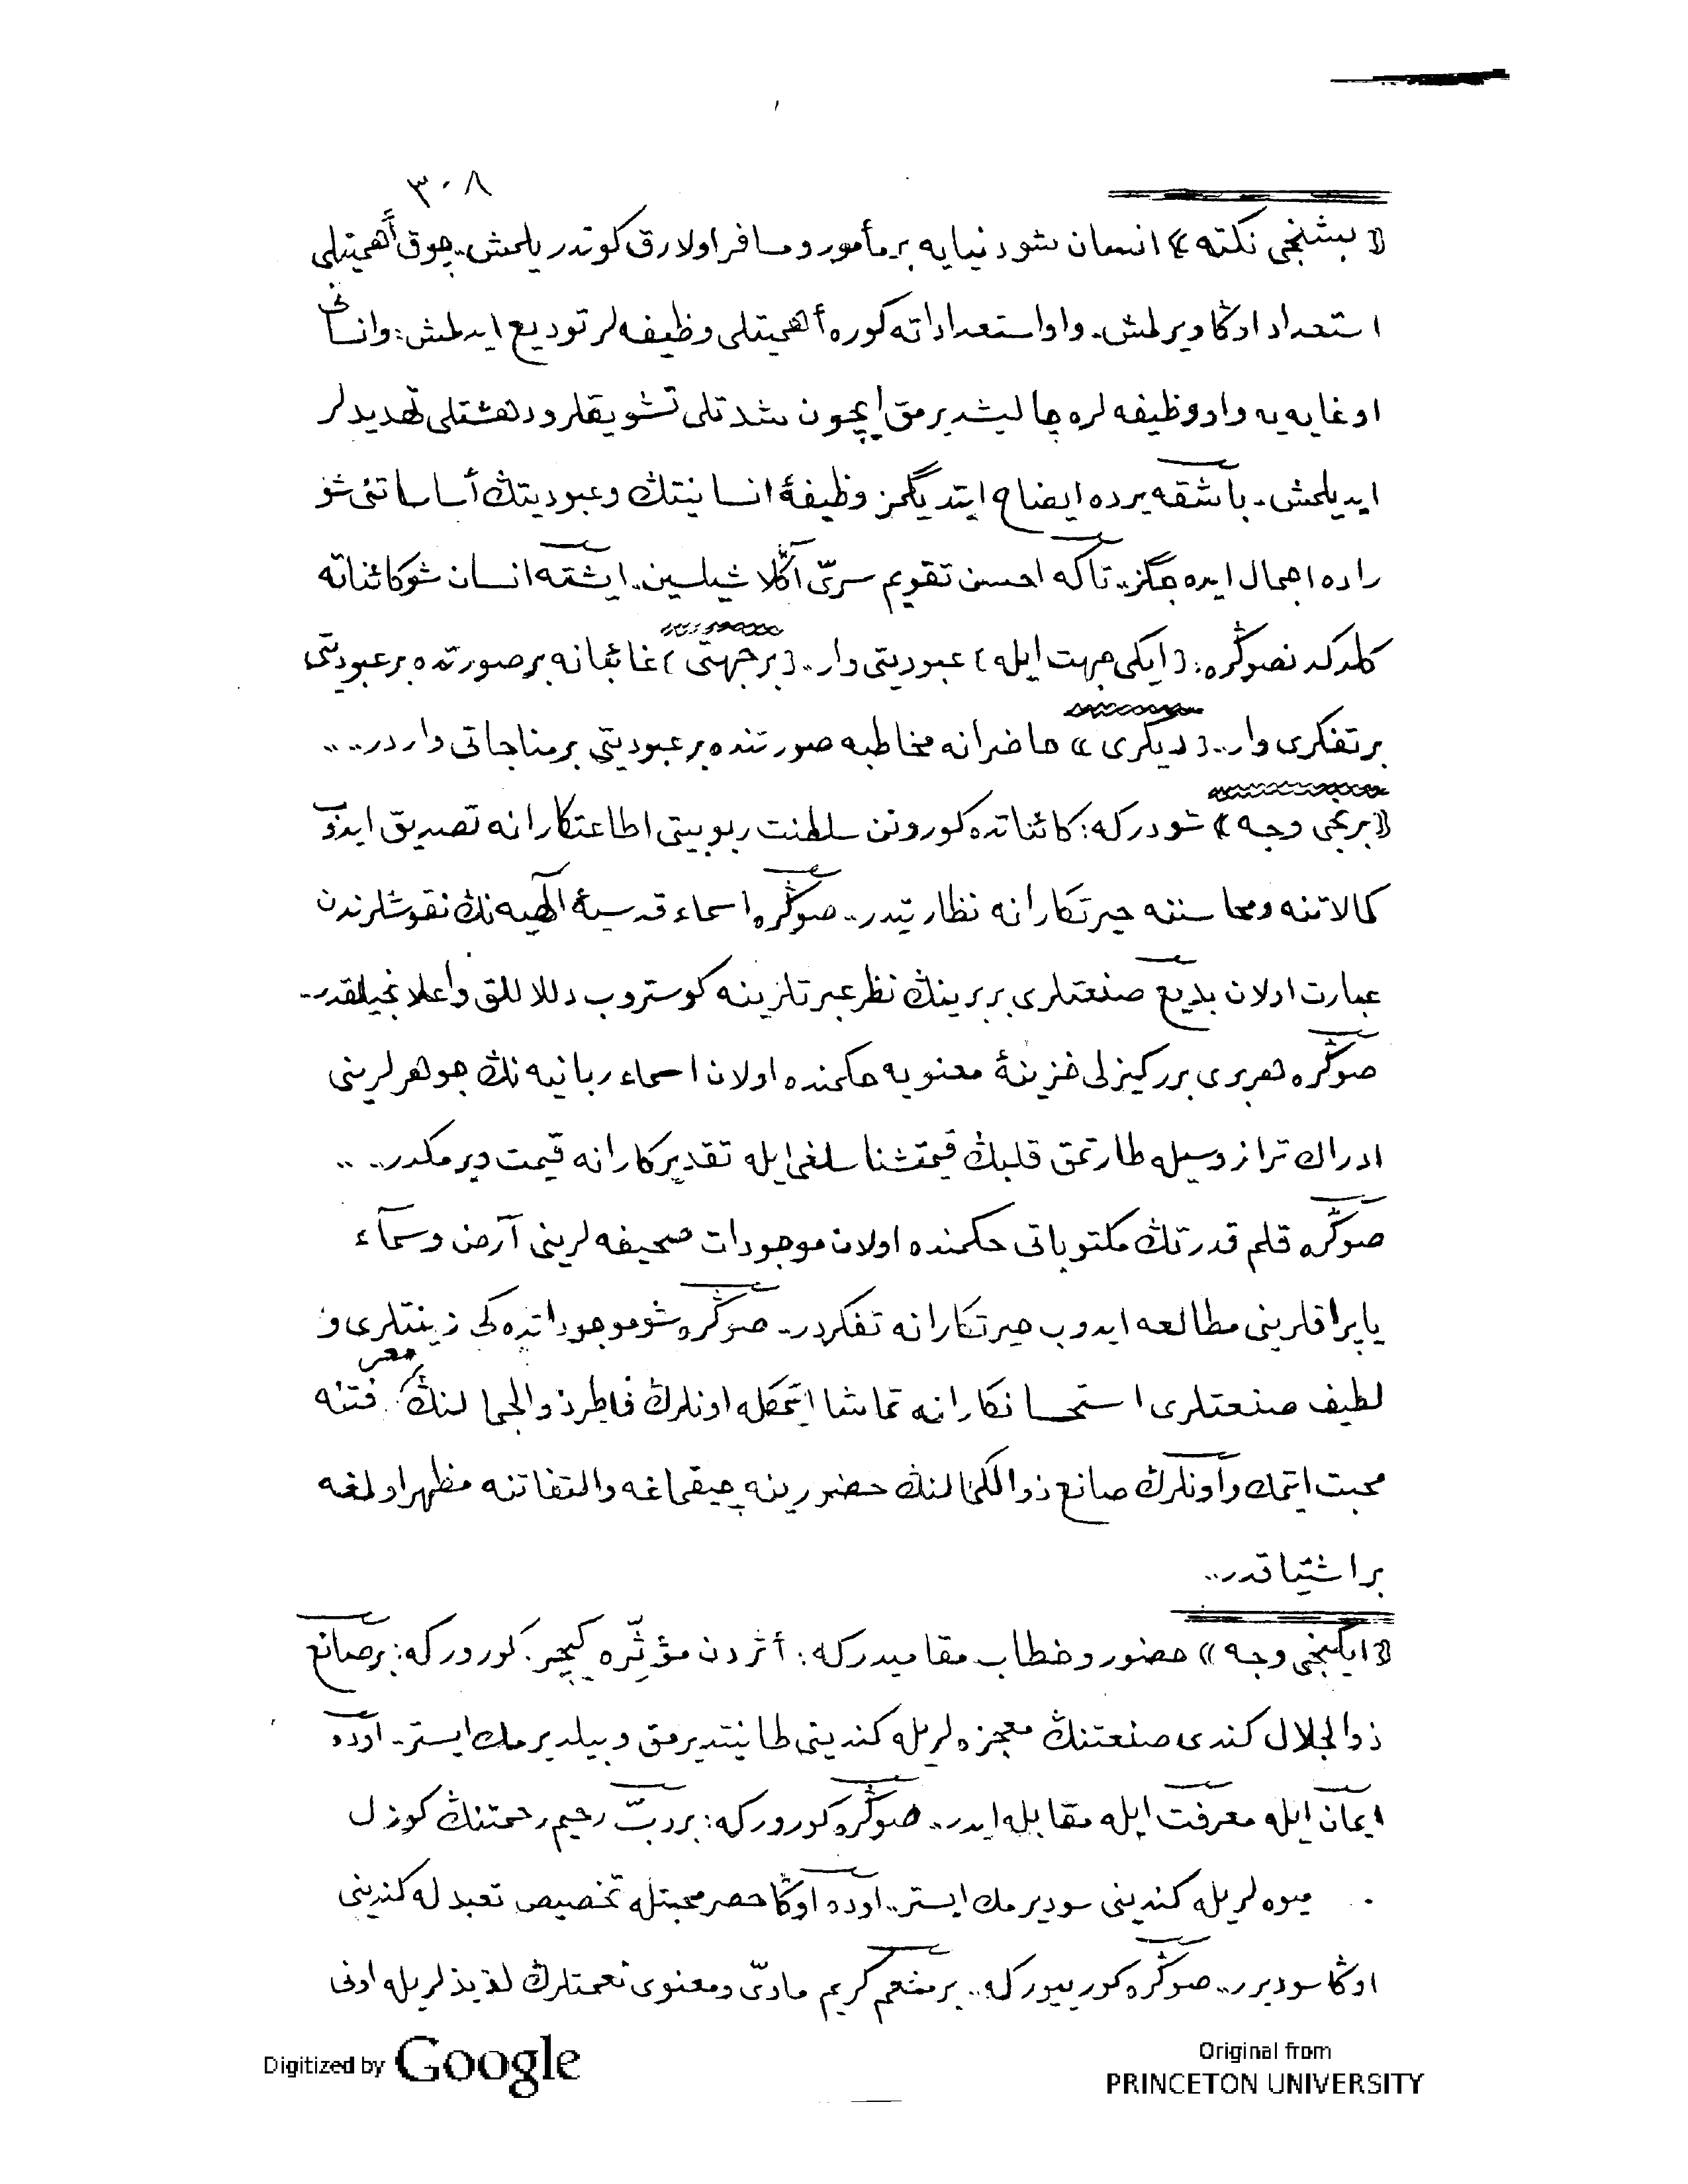 ٣٠٨
﴿ بشنجی نكته ﴾ انسان شو دنیایه بر مأمور و مسافر اولارق كوندریلمش.. چوق أهمیتلی
استعداد اوڭا ویرلمش. و او استعداداته كوره أهمیتلی وظیفه‌لر تودیع ایدلمش: وانسانی
او غایه‌یه و او وظیفه‌لره چالیشدیرمق ایچون شدتلی تشویقلر و دهشتلی تهدیدلر
ایدیلمش. باشقه یرده ایضاح ایتدیگمز وظیفۀ انسانیتڭ و عبودیتڭ أساساتنی شو
راده اجمال ایده جگز.. تاكه احسن تقویم سرّی آڭلاشیلسین.. ایشته انسان شو كائناته
كلدكدنصوڭره: ﴿ایكی جهت ایله﴾ عبودیتی وار.. ﴿بر جهتی﴾ غائبانه بر صورتده بر عبودیتی
بر تفكری وار.. ﴿دیگری﴾ حاضرانه مخاطبه صورتنده بر عبودیتی بر مناجاتی واردر.. ..
﴿برنجی وجه﴾ شودركه: كائناتده كورونن سلطنت ربوبیتی اطاعتكارانه تصدیق ایدوب
كمالاتنه و محاسننه حیرتكارانه نظارتیدر.. صوڭره اسماء قدسیۀ آلهیه‌نڭ نقوشلرندن
عبارت اولان بدیع صنعتلری بربرینڭ نظر عبرتلرینه كوستروب دلاللق و اعلانجیلقدر..
صوڭره هربری برر كیزلی خزینۀ معنویه حكمنده اولان اسماء ربانیه‌نڭ جوهرلرینی
ادراك ترازوسیله طارتمق قلبڭ قیمتشناسلغی ایله تقدیركارانه قیمت ویرمكدر.. ..
صوڭره قلم قدرتڭ مكتوباتی حكمنده اولان موجودات صحیفه‌لرینی آرض و سمآء
یاپراقلرینی مطالعه ایدوب حیرتكارانه تفكردر.. صوڭره شو موجوداتده‌كی زینتلری و
لطیف صنعتلری استحسانكارانه تماشا ایتمكله اونلرڭ فاطر ذوالجمالنڭ معرفتنه
محبت ایتمك و اونلرڭ صانع ذوالكمالنڭ حضورینه چیقماغه و التفاتنه مظهر اولمغه
بر اشتیاقدر..
﴿ایكینجی وجه﴾ حضور و خطاب مقامیدركه: أثردن مؤثّره كیچر. كورور كه: بر صانع
ذوالجلال كندی صنعتنڭ معجزه‌لریله كندینی طانیتدیرمق و بیلدیرمك ایستر.. اوده
ایمان ایله معرفت ایله مقابله ایدر.. صوڭره كورور كه: بر ربّ رحیم رحمتنڭ كوزل
میوه‌لریله كندینی سودیرمك ایستر.. اوده اوڭا حصر محبتله تخصیص تعبدله كندینی
اوڭا سودیرر.. صوڭره كورییور كه.. بر منعم كریم مادّی و معنوی نعمتلرڭ لذیذلریله اونی
Digitized by Google
Original from
PRINCETON UNIVERSITY